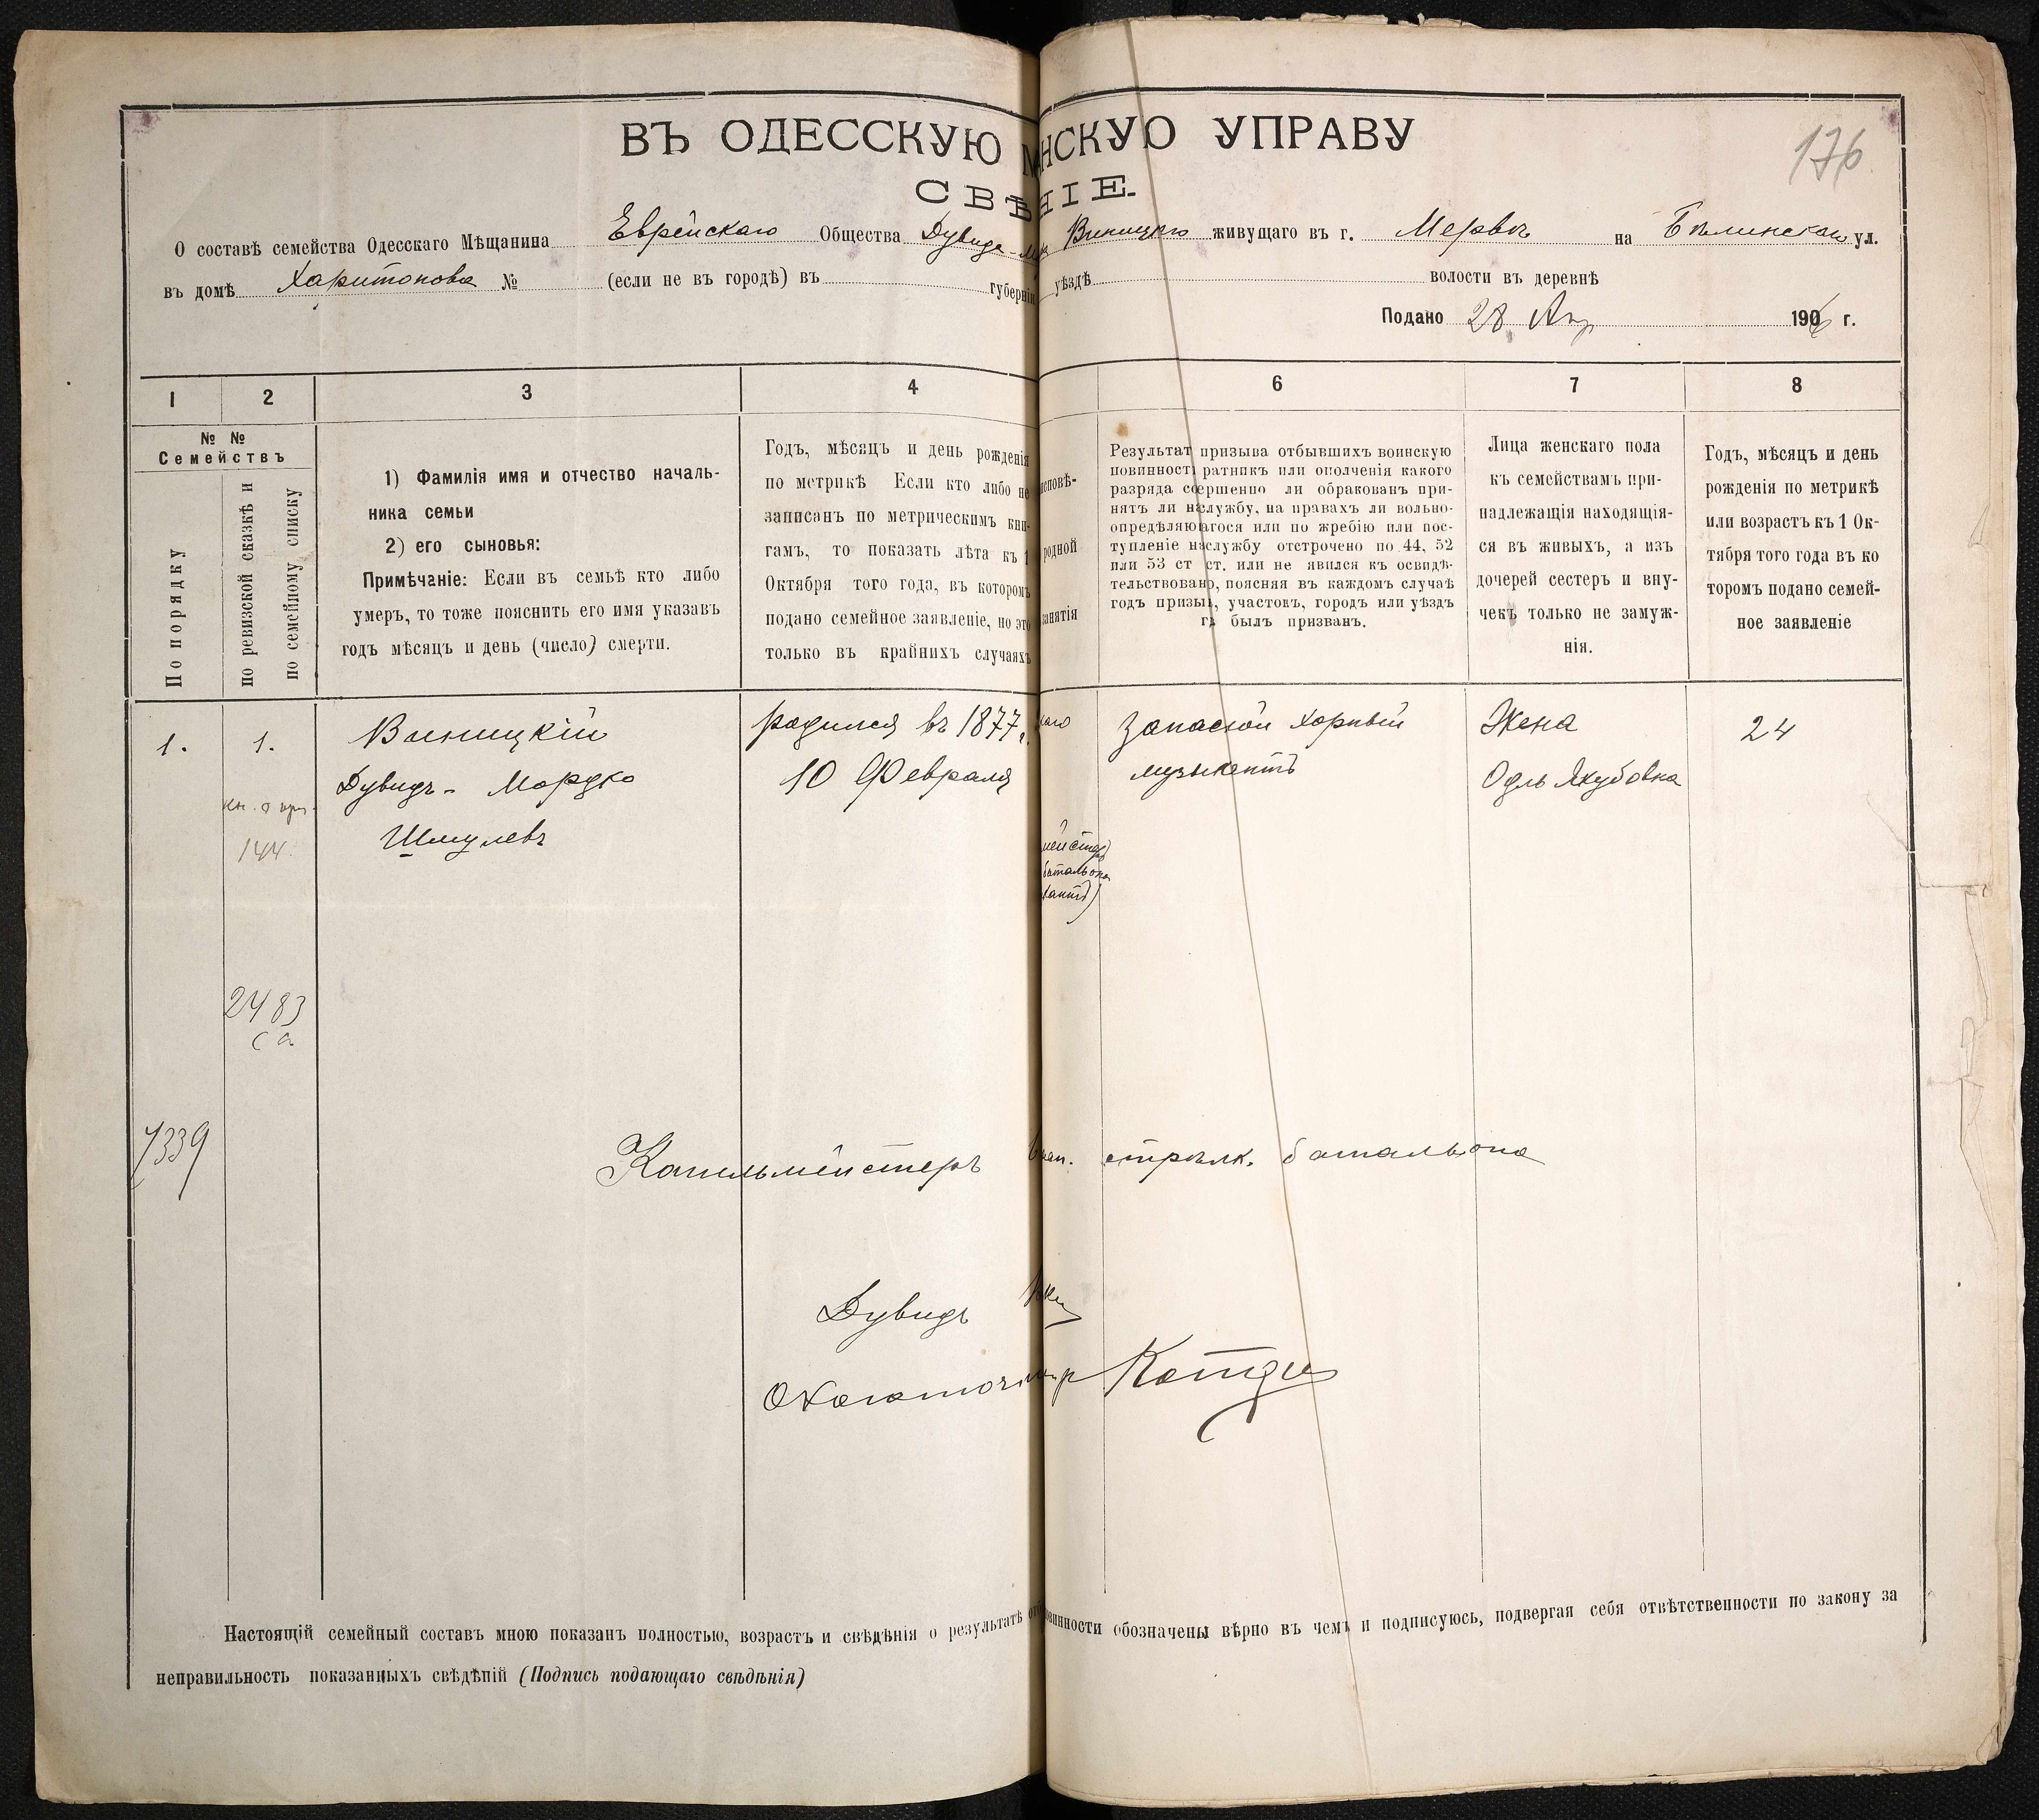 176
ВЪ ОДЕССКУЮ М НСКУЮ УПРАВУ
СВѢ НІЕ.
О составѣ семейства Одесскаго Мѣщанина Еврейскаго Общества Дувида-М Виницкаго живущаго въ г. Мервъ на Бѣлинской ул.
въ домѣ Харитонова № (если не въ городѣ) въ губерніи уѣздѣ волости въ деревнѣ
Подано 28 Апр 1906 г.
1 2 3 4 6 7 8
№ №
Семействъ
По порядку
по ревизской сказкѣ и
по семейному списку
1) Фамилія имя и отчество началь-
ника семьи
2) его сыновья:
Примѣчаніе: Если въ семьѣ кто либо
умеръ, то тоже пояснить его имя указавъ
годъ мѣсяцъ и день (число) смерти.
Годъ, мѣсяцъ и день рожденія
по метрикѣ Если кто либо не
записанъ по метрическимъ кни-
гамъ, то показать лѣта къ 1
Октября того года, въ которомъ
подано семейное заявленіе, но это
только въ крайнихъ случаяхъ
исповѣ-
родной
занятія
Результат призыва отбывшихъ воинскую
повинность ратникъ или ополченія какого
разряда совершенно ли обракованъ при-
нятъ ли на службу, на правахъ ли вольно-
опредѣляющагося или по жребію или пос-
тупленіе на службу отстрочено по 44, 52
или 53 ст ст. или не явился къ освидѣ-
тельствованію, поясняя въ каждомъ случаѣ
годъ призыва, участокъ, городъ или уѣздъ
гдѣ былъ призванъ.
Лица женскаго пола
къ семействамъ при-
надлежащія находящія-
ся въ живыхъ, а изъ
дочерей сестеръ и вну-
чекъ только не замуж-
нія.
Годъ, мѣсяцъ и день
рожденія по метрикѣ
или возрастъ къ 1 Ок-
тября того года въ ко
торомъ подано семей-
ное заявленіе
1. 1. Виницкій родился въ 1877 г. каго Запасной хорный Жена 24
Дувидъ- Мордко 10 Февраля музыкантъ Одль Якубовна
кн. о пр.
Шмулевъ
144
мейстер
батальона
кантъ)
2483
са
7339
Капельмейстеръ стрѣлк. батальона
Дувидъ
Настоящій семейный составъ мною показанъ полностью, возрастъ и свѣдѣнія о результатѣ отб овинности обозначены вѣрно въ чемъ и подписуюсь, подвергая себя отвѣтственности по закону за
неправильность показанныхъ свѣдѣній (Подпись подающаго свѣдѣнія)